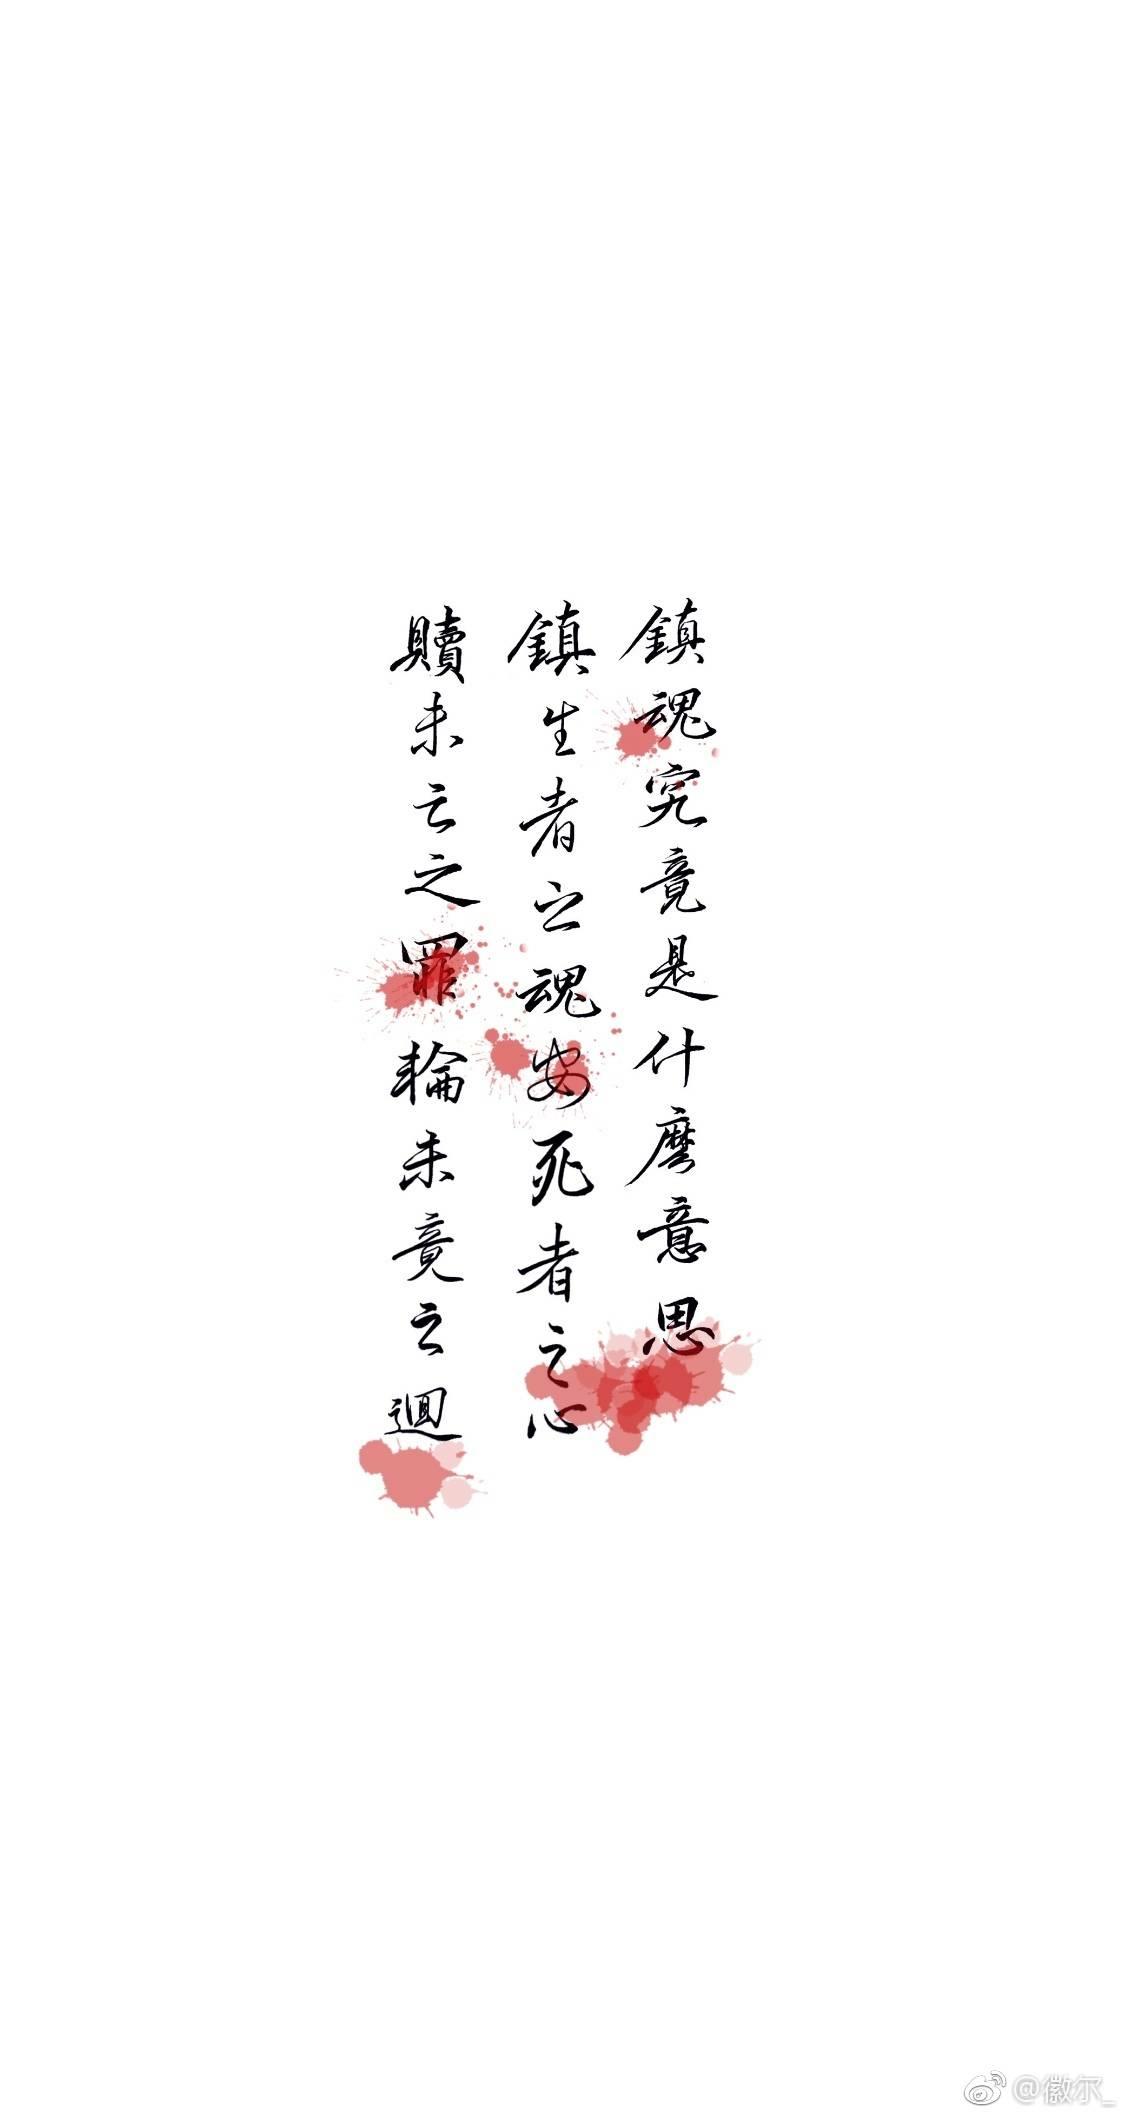 鎮魂究竟是什麼意思
鎮生者之魂安死者之心
贖未亡之罪輪未竟之迴
@徽尔_